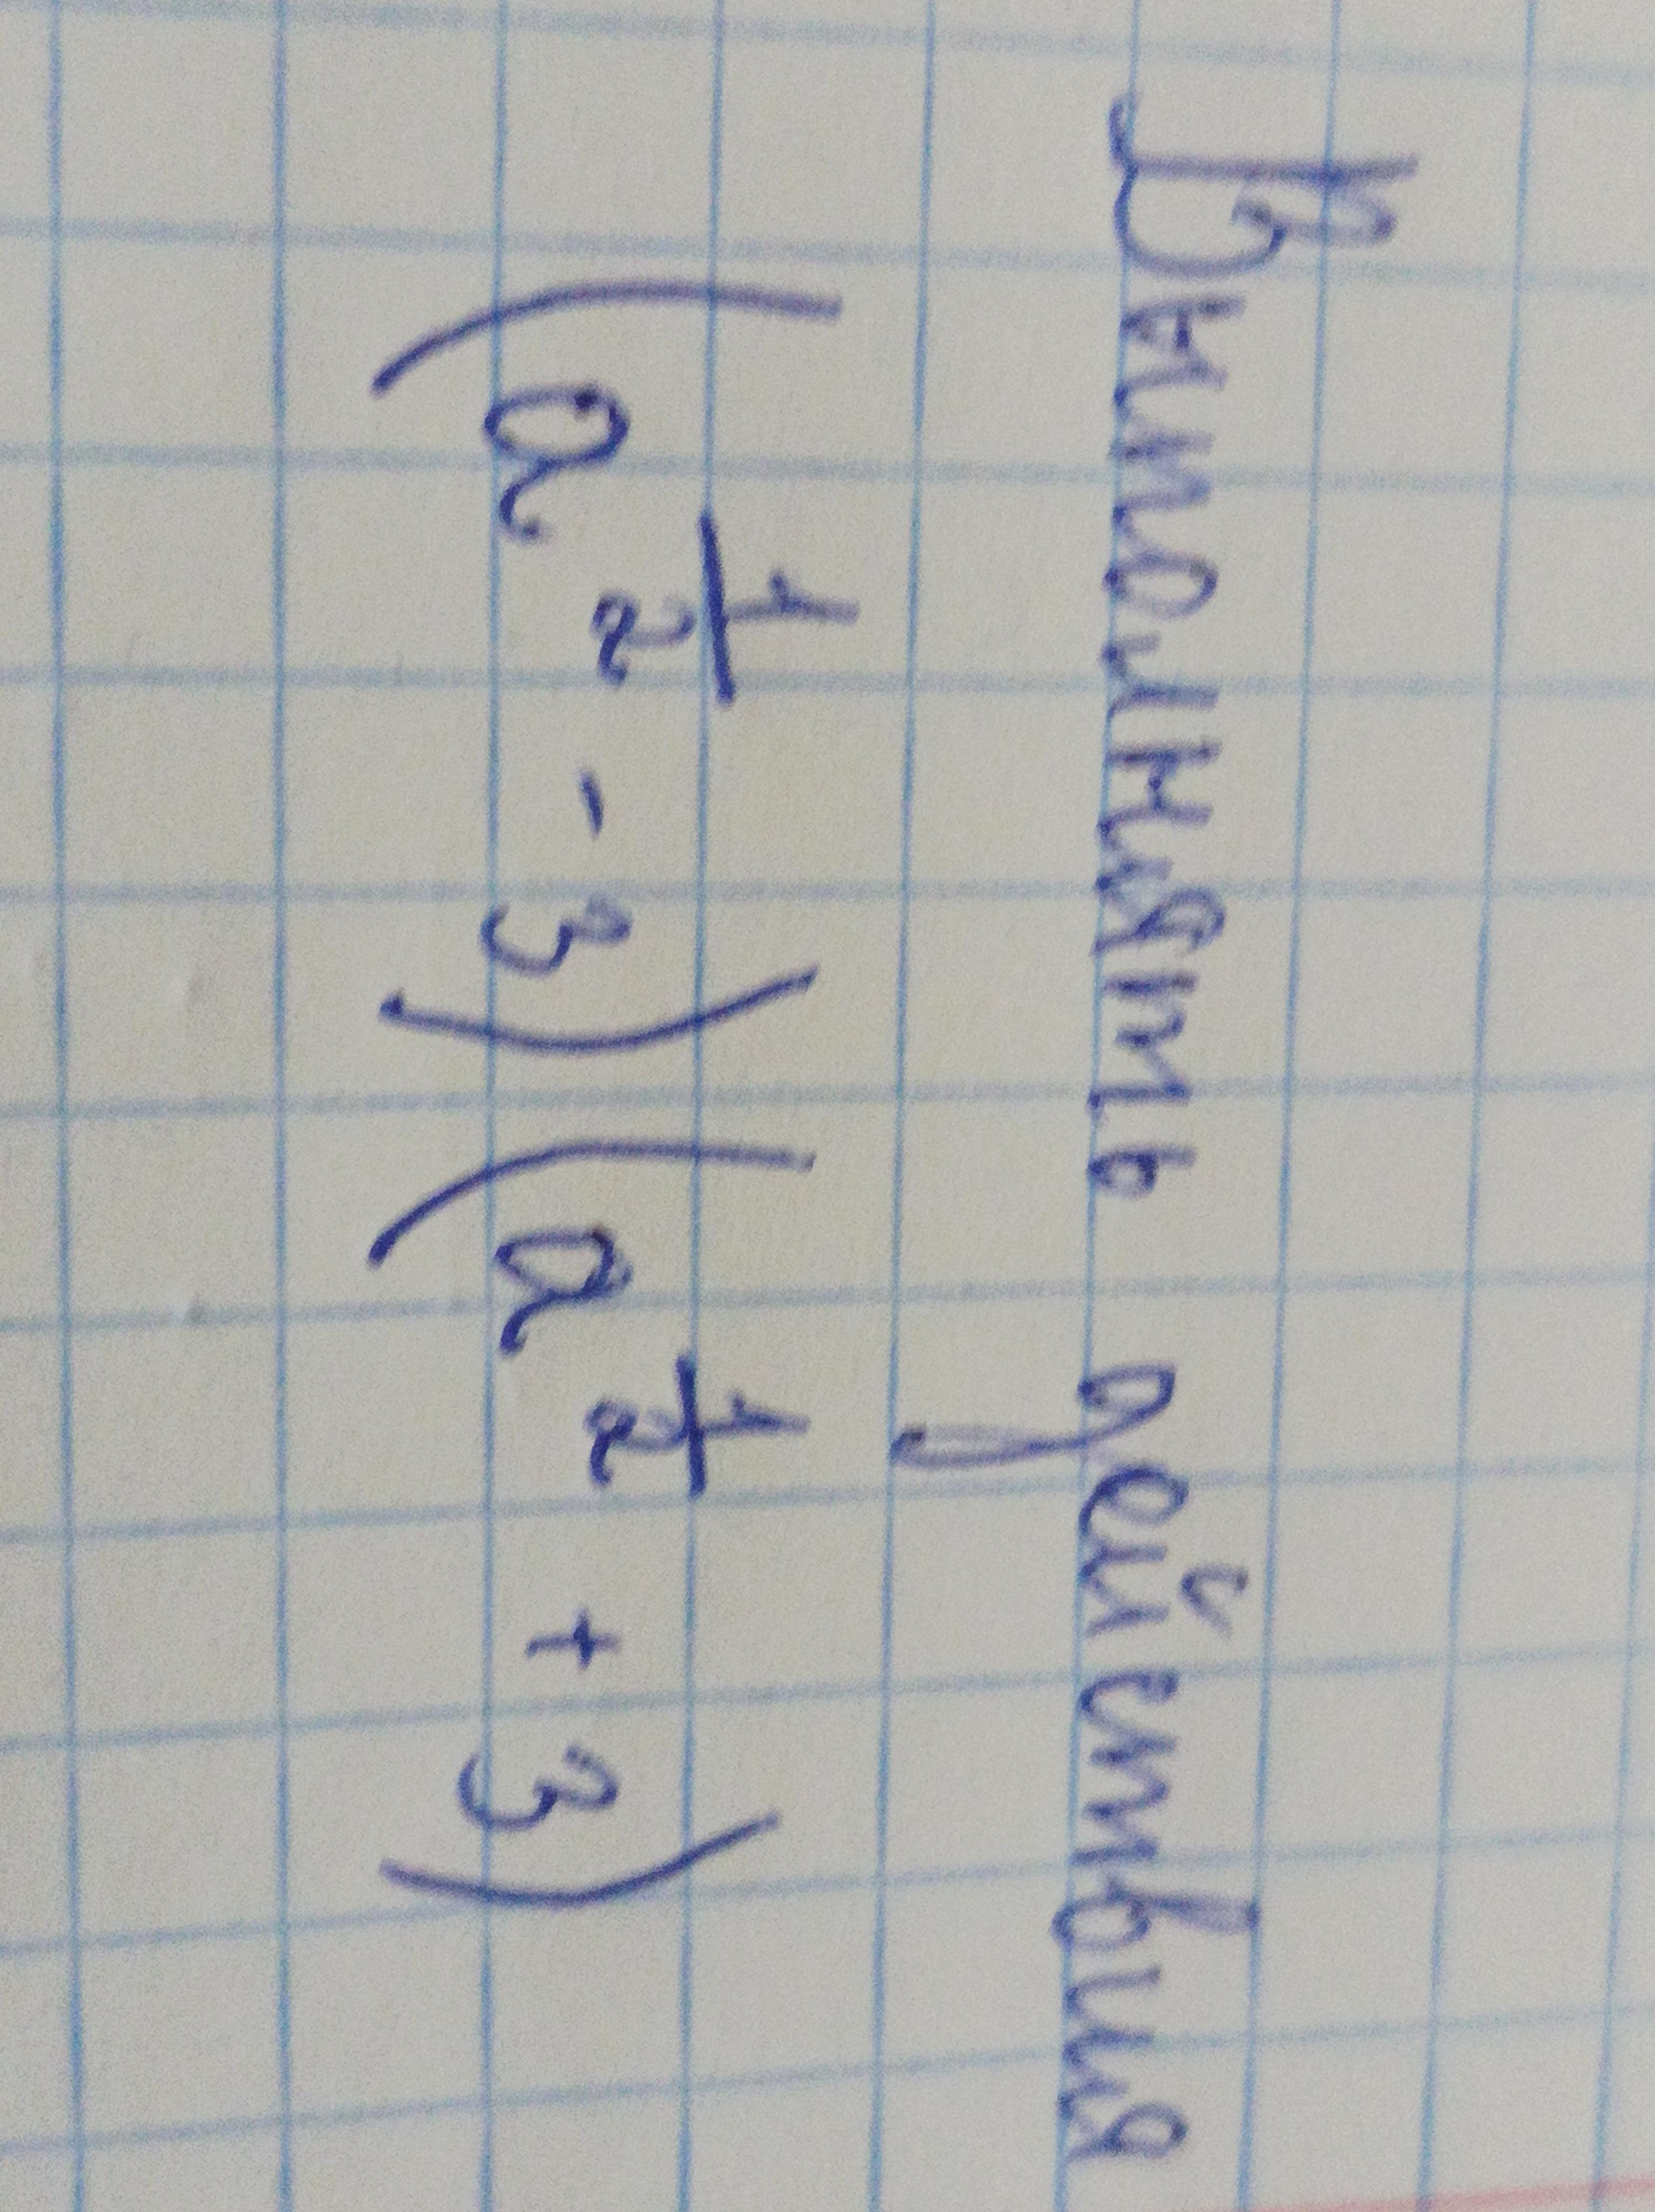 Выполнять действия
(a^{\frac{1}{2}} - 3)(a^{\frac{1}{2}} + 3)